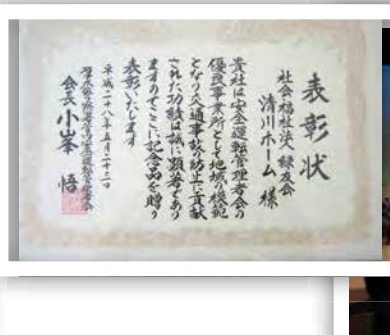 表彰状
社会福祉法人 緑友会
清川ホーム 様
貴社は安全運転管理者会の
優良事業所として地域の模範
となり交通事故の防止に貢献
された功績は誠に顕著であり
ますのでここに記念品を贈り
表彰いたします
平成二十八年五月二十二日
会長 小峯 悟